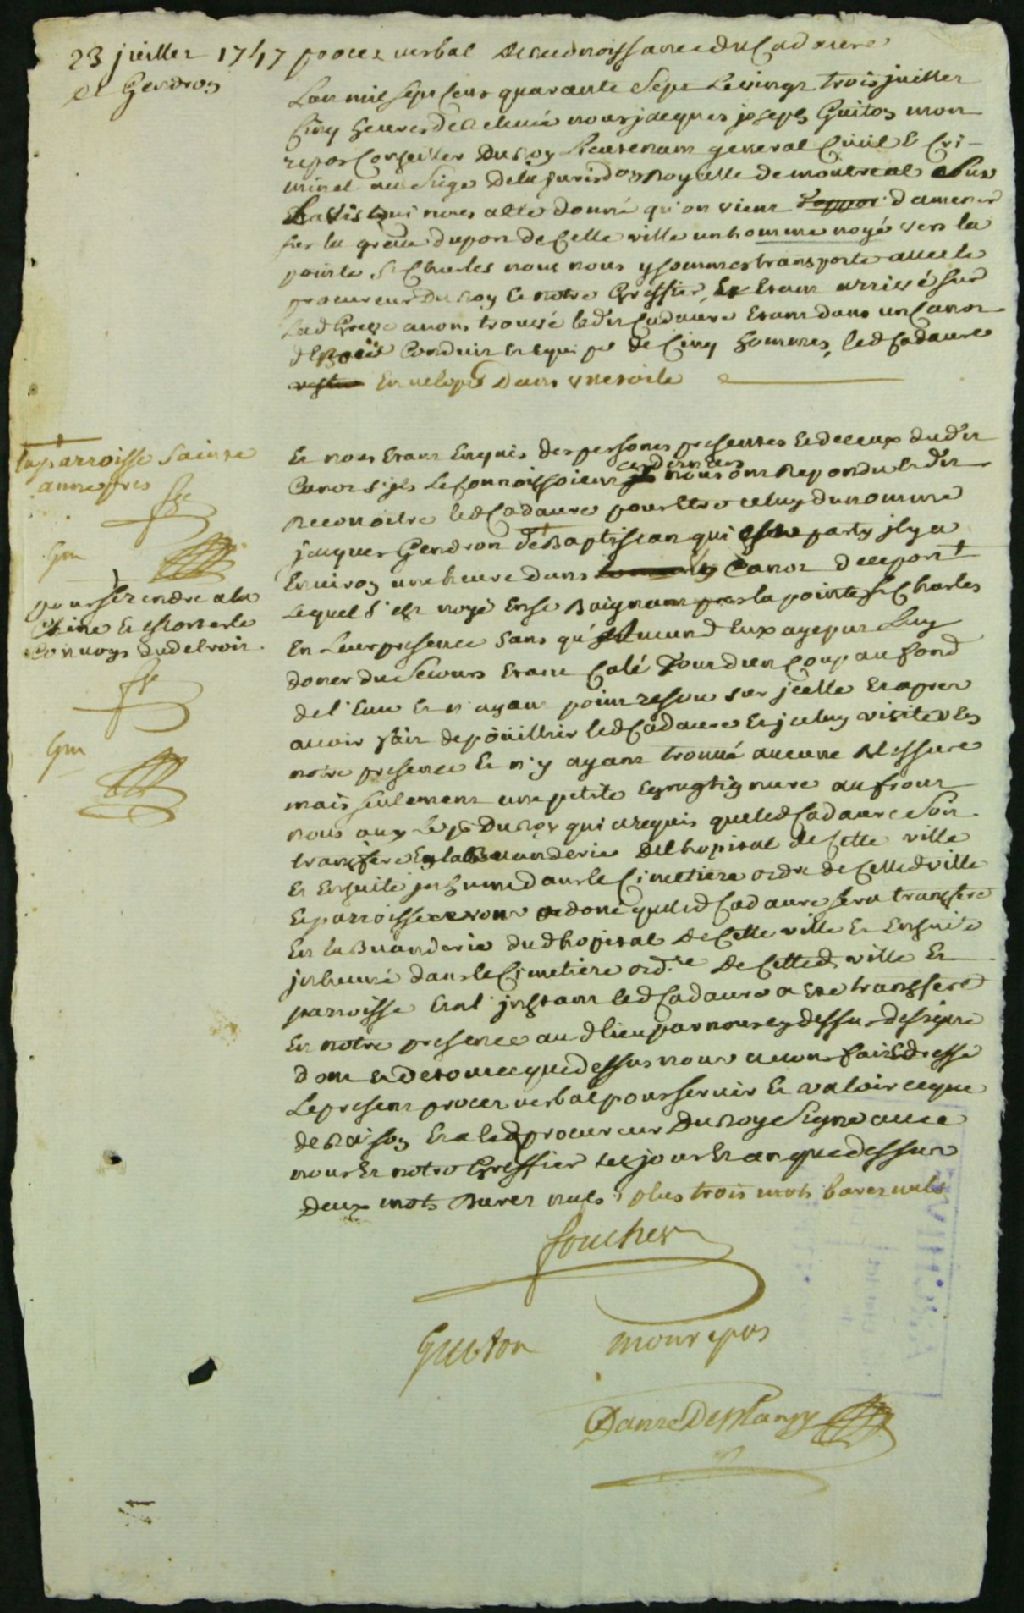 23 juillet 1747 proces verbal de reconoissance du Cadavre
de Gendron
Lan mil sept cens quarante sept le vingt trois juillet
Cinq heures de relevée nous jacques joseph Guiton mon
repos Conseiller du Roy Lieutenant general Civil & Cri-
minel au siege de la jurisdon Royalle de montreal sur
Lavis qui nous a ete donné qu'on vient d'amener
sur la greve du port de Cette ville un homme noyé vers la
pointe St Charles nous nous y sommes transporté avec le
procureur du Roy & notre Greffier, Et Etant arrivé sur
lad Greve avons trouvé ledit Cadavre Etant dans un Canot
d'Ecorce Conduit & equipé de Cinq hommes, led Cadavre
Envelopé dans une voile
Et nous Etant Enquis des persones presentes & de ceux dudit
Canot s'ils le connoissoient ces derniers nous ont Repondu le dit
Reconoitre led Cadavre pour Etre celuy du nommé
jacques Gendron de Baptiscan qui est party il y a
Environ une heure dans Canot de ce port
Lequel s'est noyé En se Baignant pres la pointe St Charles
En Leur presence sans qu'aucun d'Eux aye pu Luy
doner du secours Etant Calé tout d'un Coup au fond
de l'Eau & n'ayant point resou sur jcelle Et apres
avoir fait depoüiller led Cadavre & jceluy visité En
notre presence & n'y ayant trouvé aucune Blessure
mais seulement une petite Egratignure au front
nous ouy le pr du Roy qui a requis que led Cadavre soit
transferé En la Buanderie de l'hopital de Cette ville
Et Ensuite jnhumé dans le Cimetiere ordre de Cette d ville
& parroisse avons ordoné que led Cadavre sera transferé
En la Buanderie dud hopital de Cette ville Et Ensuite
jnhumé dans le Cimetiere ord.re de Cette d. ville Et
parroisse Et a l'jnstant led Cadavre a Eté transferé
En notre presence au d lieu par nous cy dessus designé
dont & de tout ce que dessus nous avons fait & dressé
Le present proces verbal pour servir & valoir ce que
de Raison Et a led procureur du Roy signé avec
nous & notre Greffier les jour & an que dessus
deux mots Rayez nuls plus trois mots barez nuls
la parroisse Sainte
anne pres
Gm
pour se rendre a la
Chine & le
Convoy du detroit.
Gm
foucher
Guiton monrepos
Danré De Blanzy